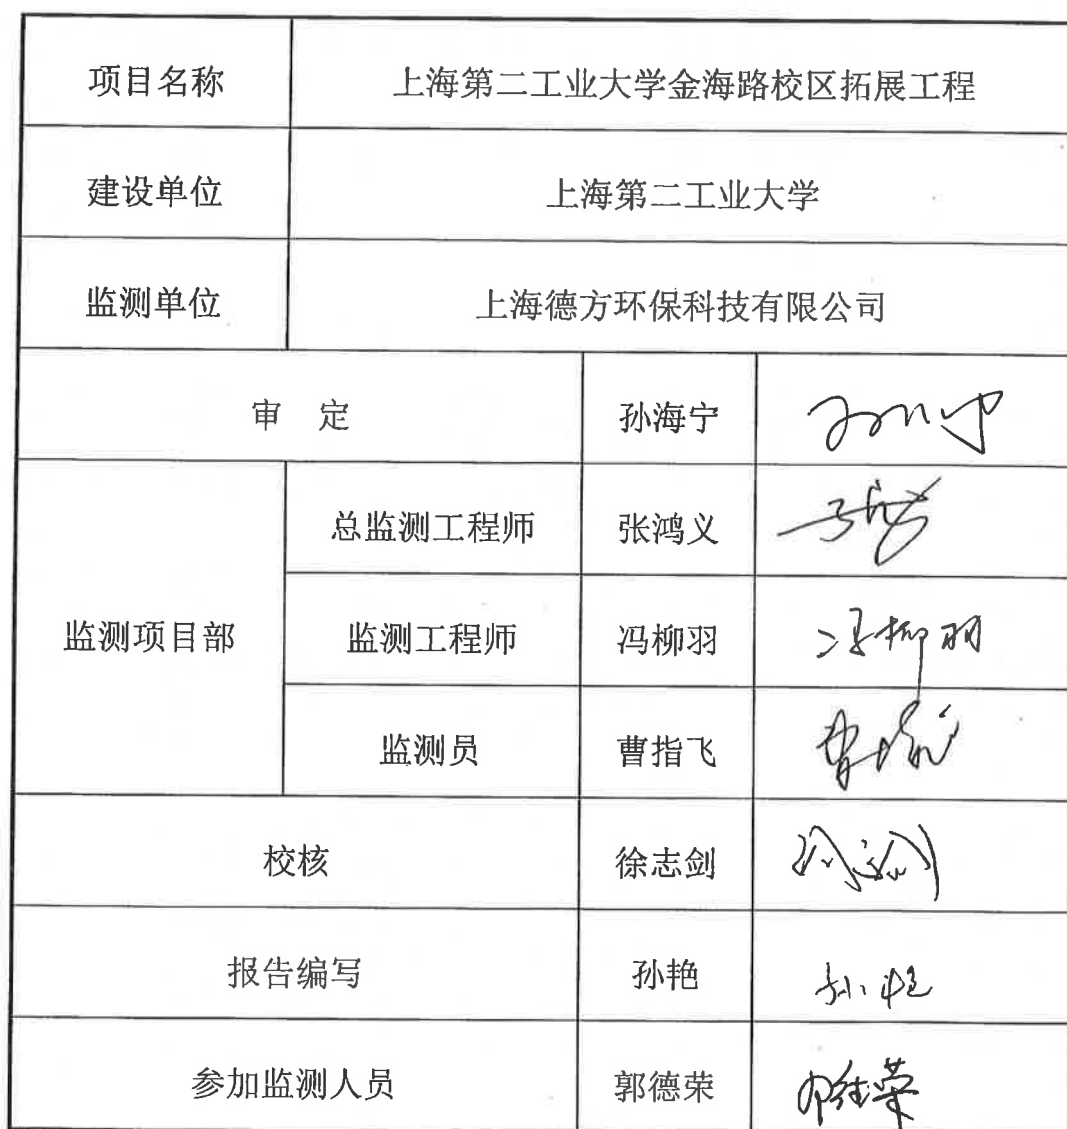 项目名称 上海第二工业大学金海路校区拓展工程
建设单位 上海第二工业大学
监测单位 上海德方环保科技有限公司
审 定 孙海宁
总监测工程师 张鸿义
监测项目部 监测工程师 冯柳羽 冯柳羽
监测员 曹指飞
校核 徐志剑
报告编写 孙艳 孙艳
参加监测人员 郭德荣